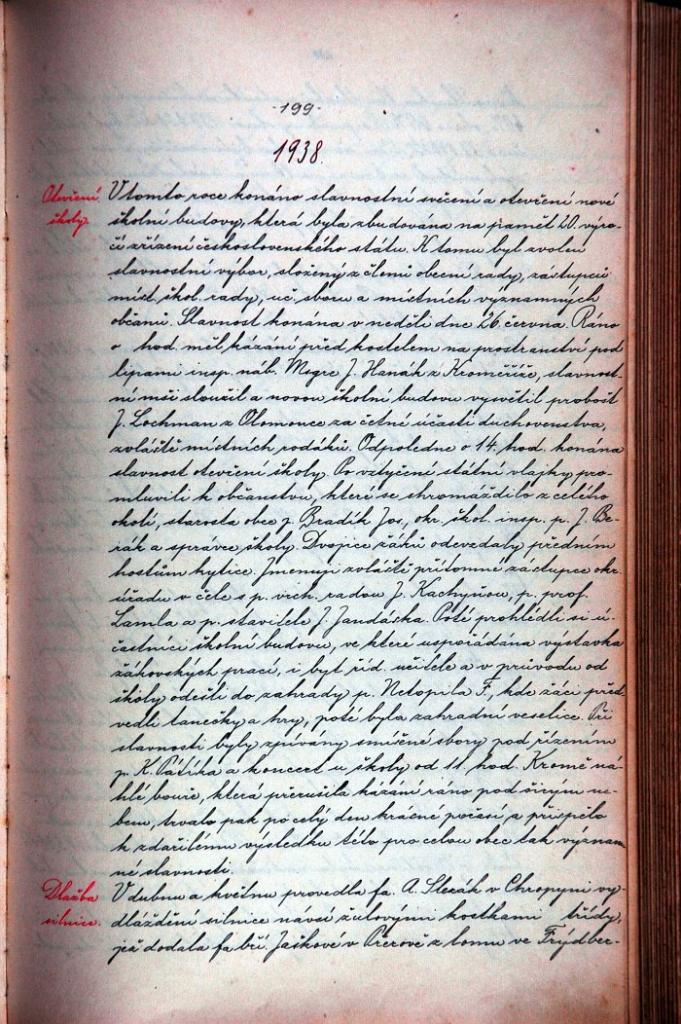 -199-
1938.
Otevření
školy.
V tomto roce konáno slavnostní svěcení a otevření nové
školní budovy, která byla zbudována na paměť 20. výro-
čí zřízení československého státu. K tomu byl zvolen
slavnostní výbor, složený z členů obecní rady, zástupců
míst. škol. rady, uč. sboru a místních významných
občanů. Slavnost konána v neděli dne 26. června. Ráno
o hod. měl kázání před kostelem na prostranství pod
lipami insp. náb. Msgre J. Hanák z Kroměříže, slavnost-
ní mši sloužil a novou školní budovu vysvětil probošt
J. Lochman z Olomouce za četné účasti duchovenstva,
zvláště místních rodáků. Odpoledne o 14. hod. konána
slavnost otevření školy. Po vztyčení státní vlajky pro-
mluvili k občanstvu, které se shromáždilo z celého
okolí, starosta obce p. Bradík Jos., okr. škol. insp. p. J. Be-
rák a správce školy. Dvojice žáků odevzdaly předním
hostům kytice. Jmenuji zvláště přítomné zástupce okr.
úřadu v čele s p. vrch. radou J. Kachyňou, p. prof.
Lamla a p. stavitele J. Jandáska. Poté prohlédli si ú-
častníci školní budovu, ve které uspořádána výstavka
žákovských prací, i byt říd. učitele a v průvodu od
školy odešli do zahrady p. Netopila F., kde žáci před-
vedli tanečky a hry, poté byla zahradní veselice. Při
slavnosti byly zpívány smíšené sbory pod řízením
p. K. Pátíka a koncert u školy od 11. hod. Kromě ná-
hlé bouře, která přerušila kázání ráno pod širým ne-
bem, trvalo pak po celý den krásné počasí a přispělo
k zdařilému výsledku této pro celou obec tak význam-
né slavnosti.
Dlažba
silnice.
V dubnu a květnu provedla fa. A. Slezák v Chropyni vy-
dláždění silnice navsí žulovými kostkami třídy,
jež dodala fa bří. Jaškové v Přerově z lomu ve Frýdber-